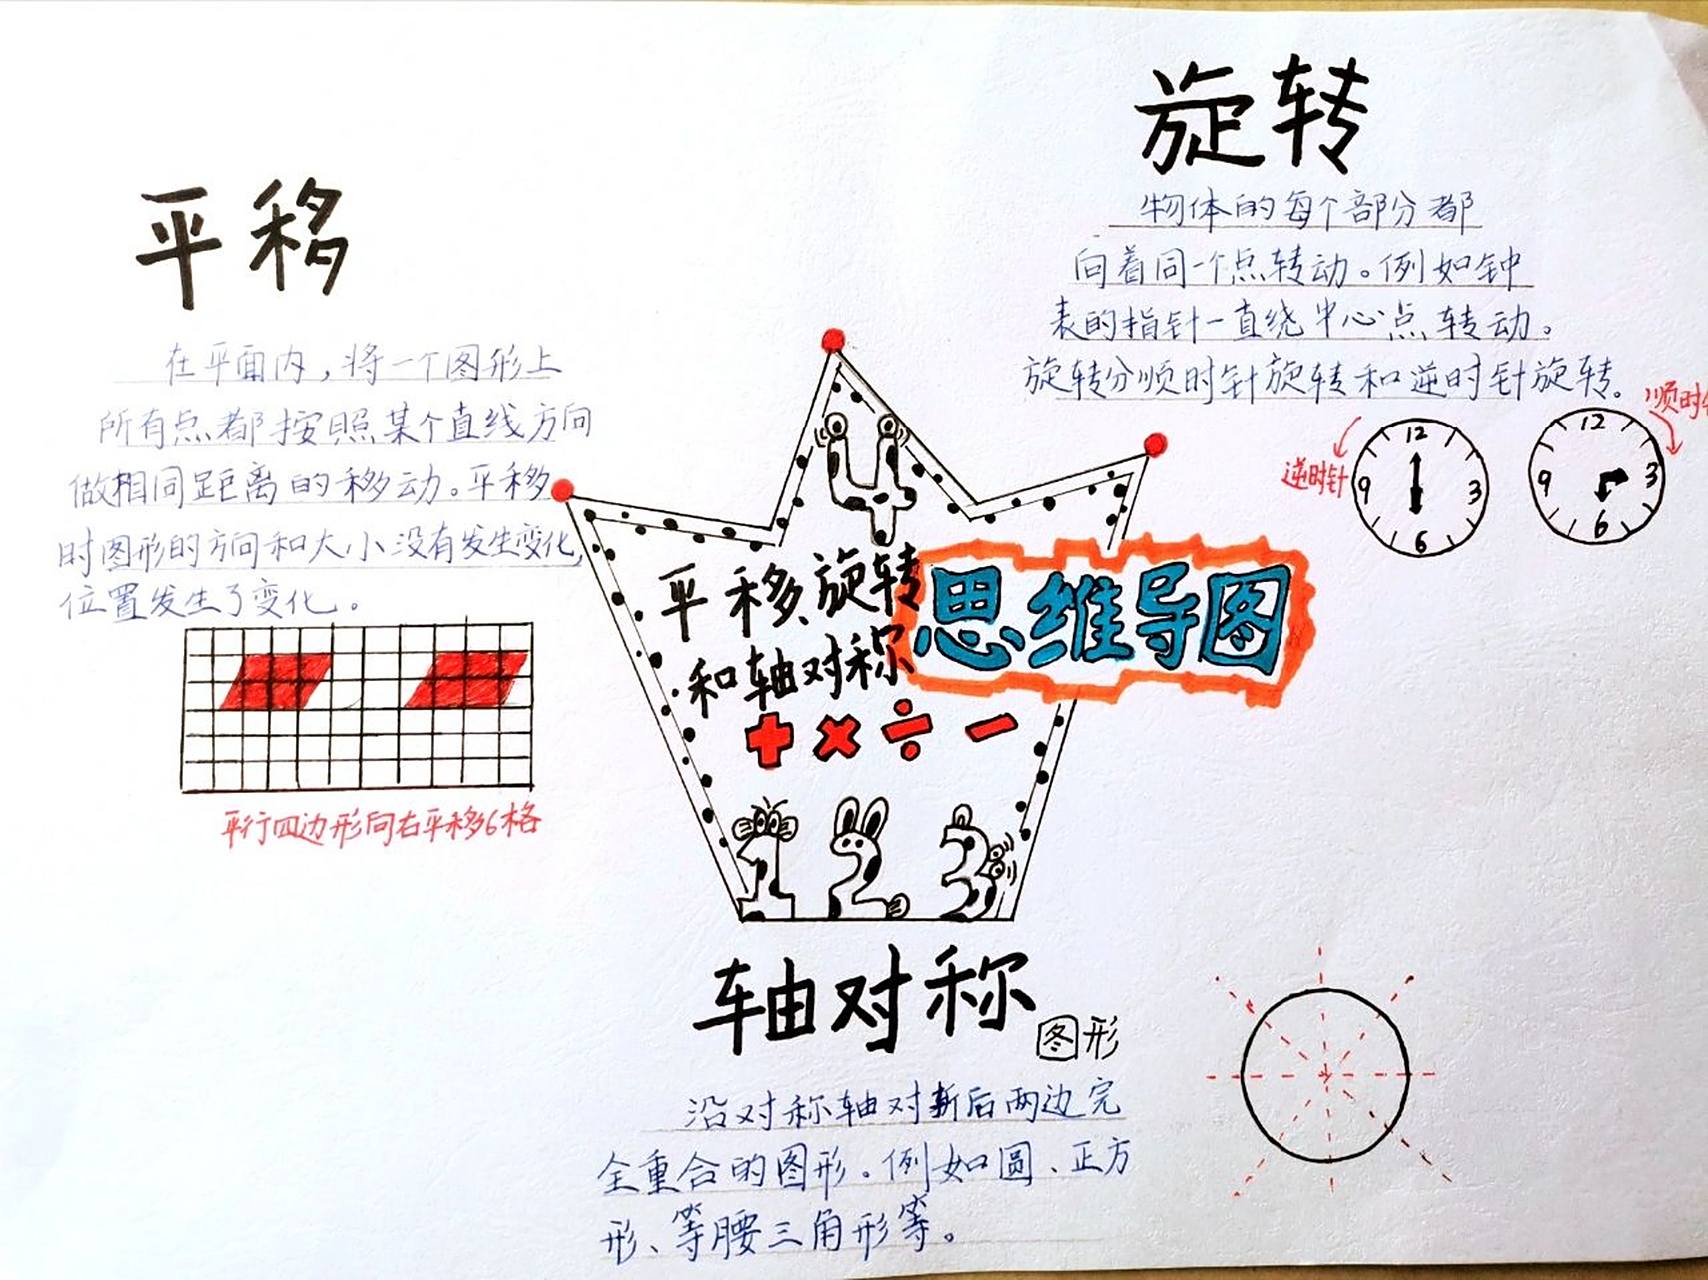 平移
在平面内，将一个图形上
所有点都按照某个直线方向
做相同距离的移动。平移
时图形的方向和大小没有发生变化，
位置发生了变化。
平行四边形向右平移6格
旋转
物体的每个部分都
向着同一个点转动。例如钟
表的指针一直绕中心点转动。
旋转分顺时针旋转和逆时针旋转。
逆时针
12
9 3
6
顺时针
12
9 3
6
4
平移、旋转
和轴对称
思维导图
+ × ÷ −
1 2 3
轴对称
图形
沿对称轴对折后两边完
全重合的图形。例如圆、正方
形、等腰三角形等。